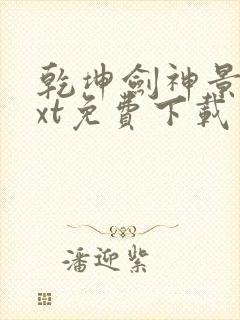 乾坤劍神景
xt免費下載
潘迎紫